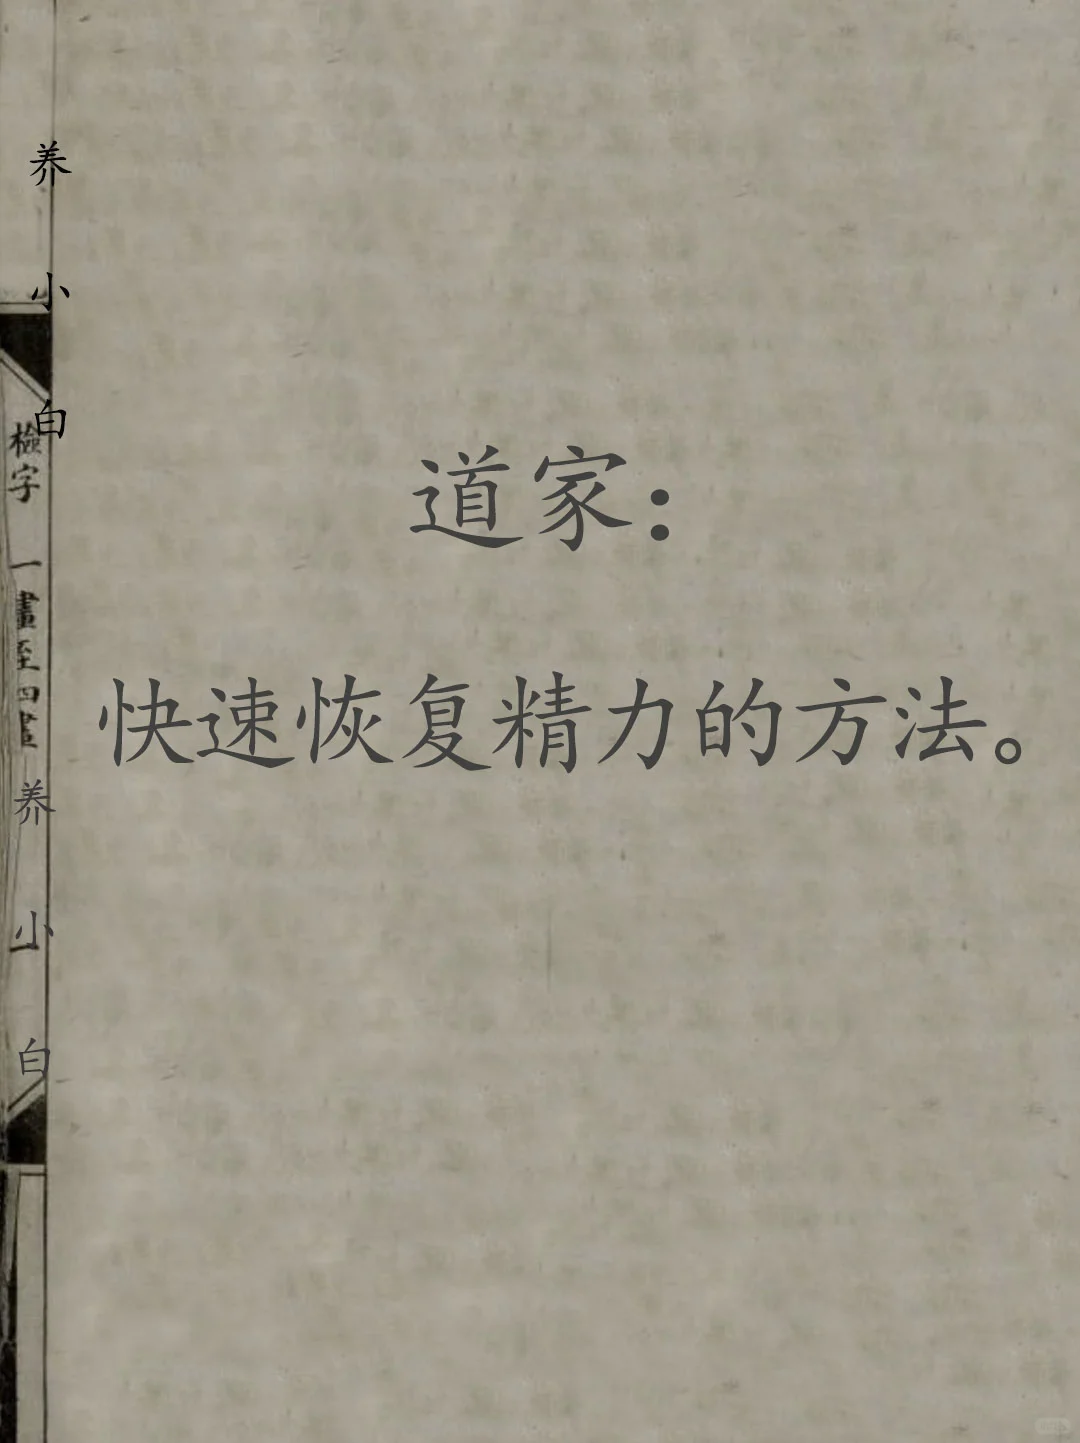 道家：
快速恢复精力的方法。
养小白
檢字 一畫至四畫
养小白